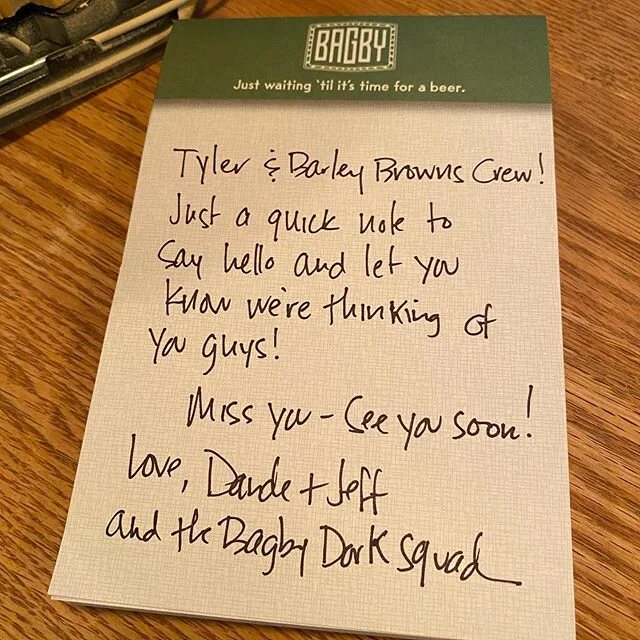 BAGBY
Just waiting 'til it's time for a beer.
Tyler & Barley Browns Crew!
Just a quick note to
say hello and let you
know we're thinking of
you guys!
Miss you - See you soon!
Love, Dande + Jeff
and the Bagby Dork Squad